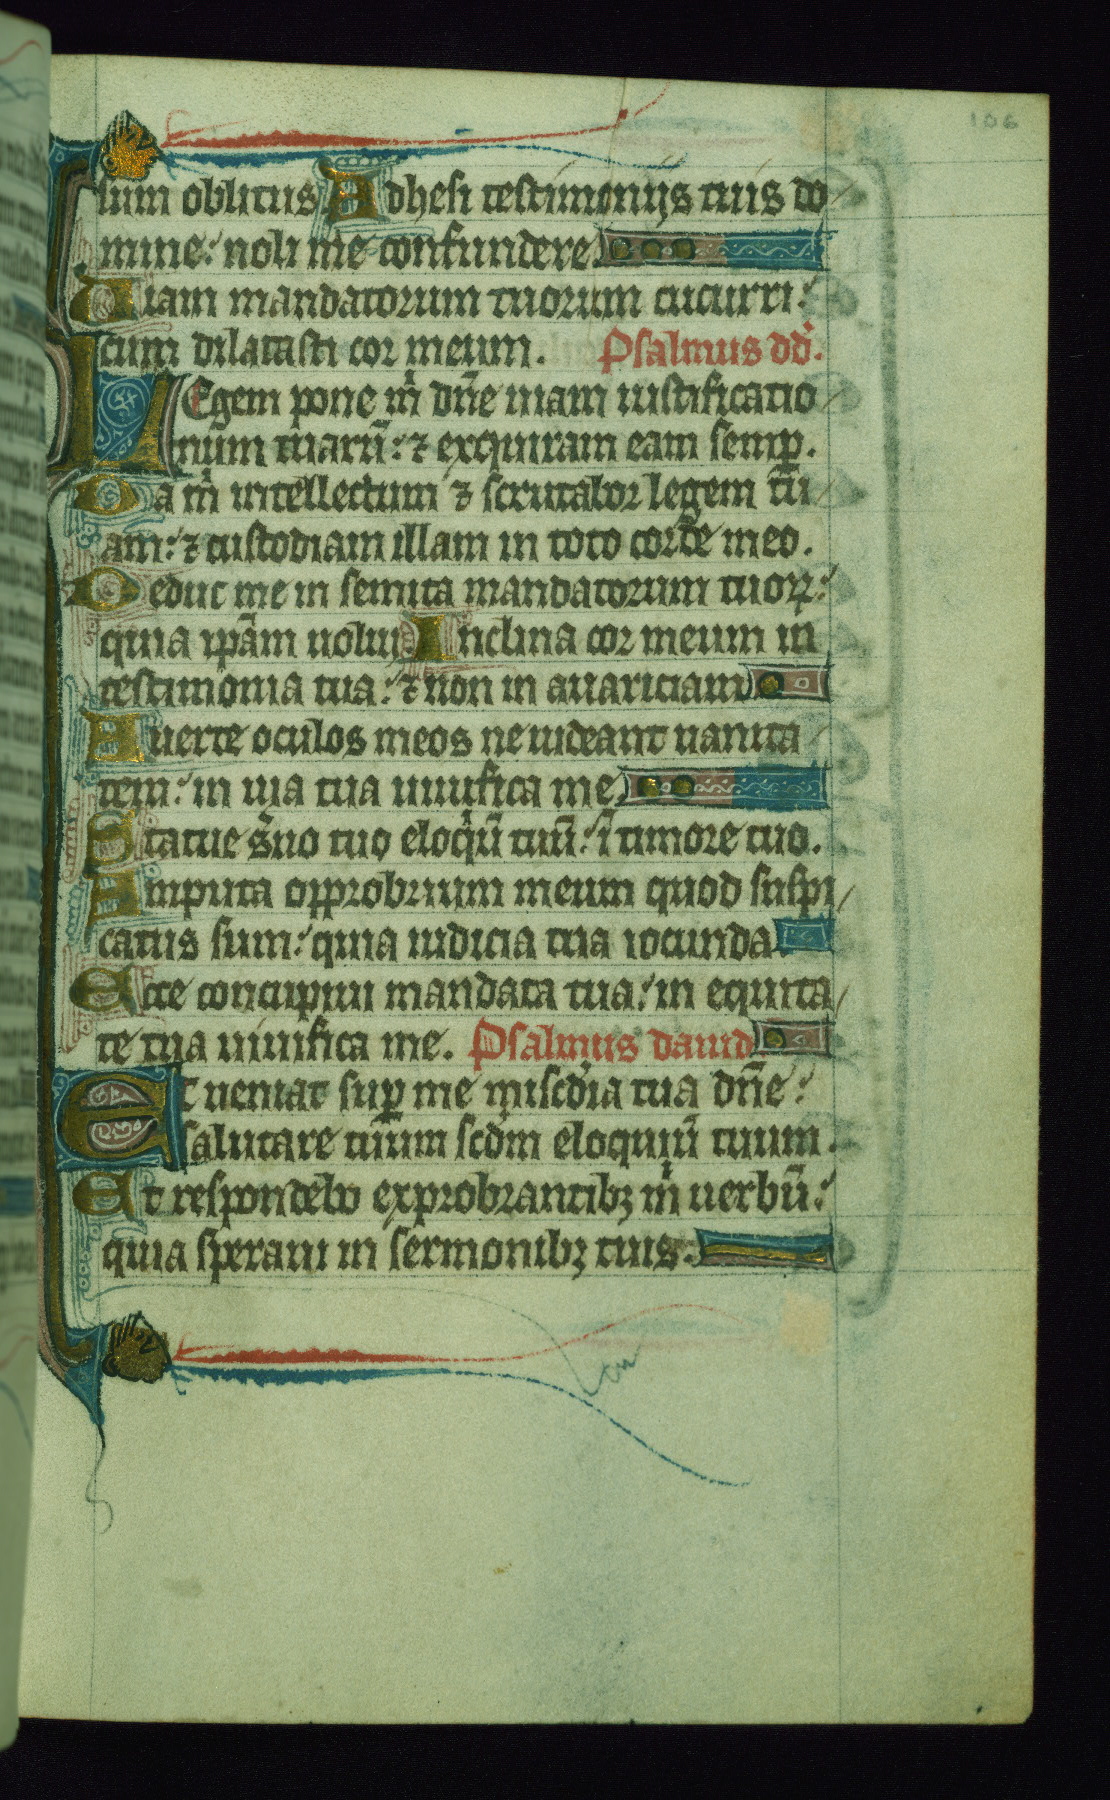 106
sum oblitus Adhesi testimonijs tuis do
mine: noli me confundere.
Uiam mandatorum tuorum cucurri:
cum dilatasti cor meum. Psalmus dd.
LEgem pone m̅ dn̅e uiam iustificatio
num tuaru̅: ⁊ exquiram eam semp̲.
Da m̅ intellectum ⁊ scrutabor legem tu̅
am: ⁊ custodiam illam in toto corde meo.
Deduc me in semita mandatorum tuoꝝ:
quia ip̅am uolui Inclina cor meum in
testimonia tua: ⁊ non in auariciam
Auerte oculos meos ne uideant uanita
tem: in uia tua uiuifica me
Statue s̅uo tuo eloq̅u̅ tuu̅: i̅ timore tuo.
Amputa opprobrium meum quod suspi
catus sum: quia iudicia tua iocunda
Ecce concupiui mandata tua: in equita
te tua uiuifica me. Psalmus dauid
Et ueniat sup̲ me misc̅dia tua dn̅e:
salutare tuum scd̅m eloquiu̅ tuum.
Et respondebo exprobrantibꝫ m̅ uerbu̅:
quia speraui in sermonibꝫ tuis.